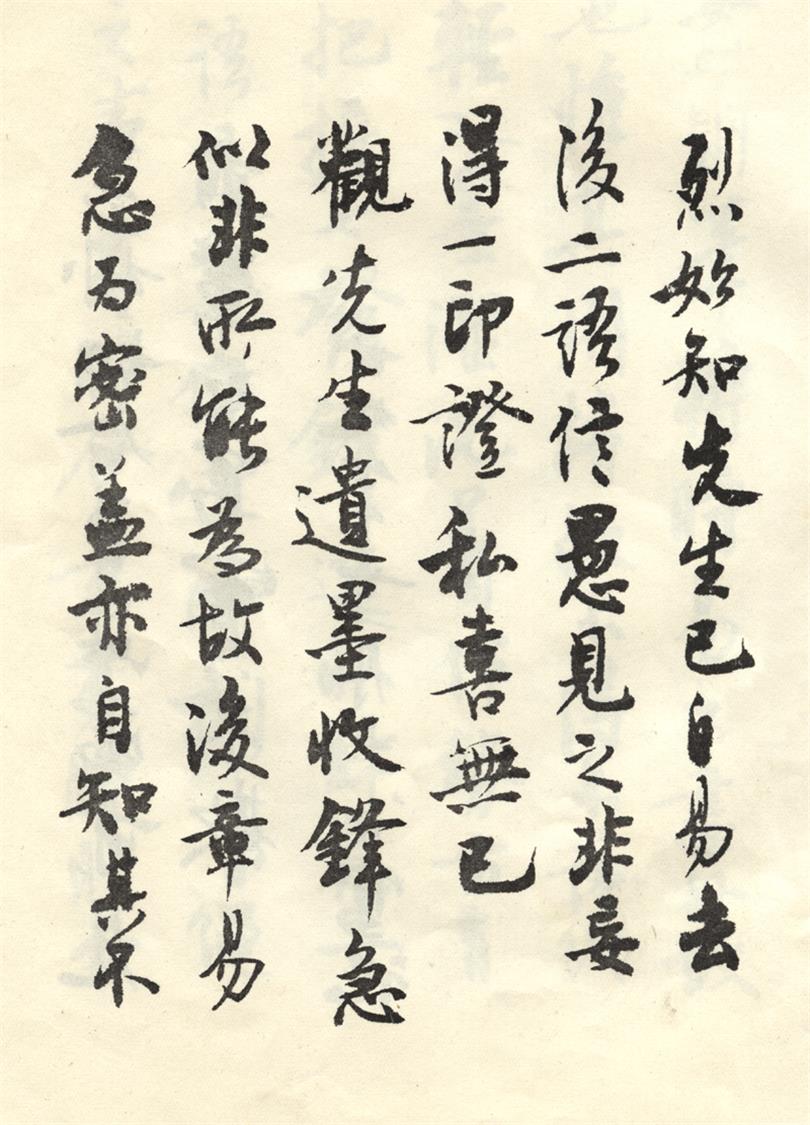 烈始知先生已自易去
後二語信愚見之非妄
得一印證私喜無已
觀先生遺墨收鋒急
似非所能為故後章易
急为密盖亦自知其不